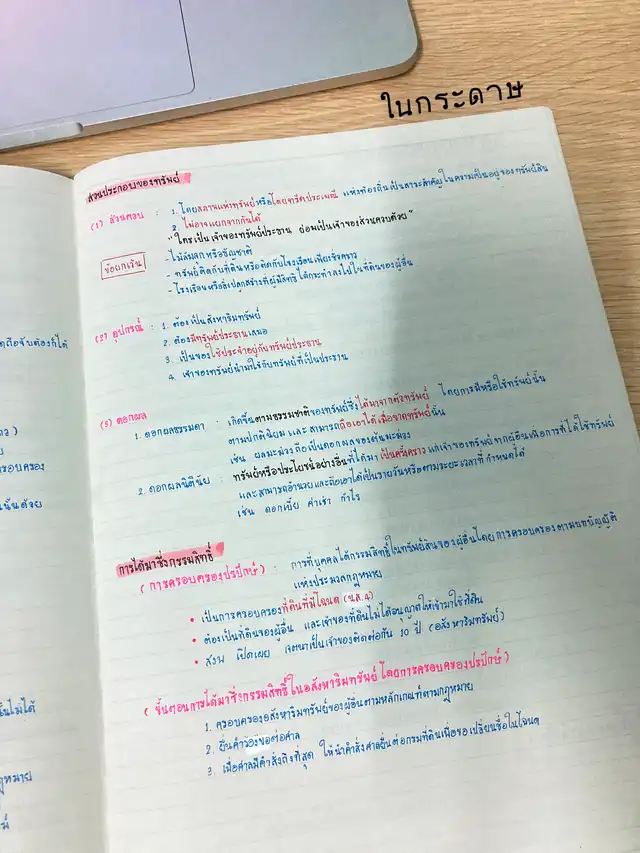 ในกระดาษ
ส่วนประกอบของทรัพย์
(1) ส่วนควบ : 1. โดยสภาพแห่งทรัพย์หรือโดยจารีตประเพณี แห่งท้องถิ่นเป็นสาระสำคัญในความเป็นอยู่ของทรัพย์สิน
2. ไม่อาจแยกจากกันได้
"ใครเป็นเจ้าของทรัพย์ประธาน ย่อมเป็นเจ้าของส่วนควบด้วย"
ข้อยกเว้น - ไม้ล้มลุกหรือธัญชาติ
- ทรัพย์ติดกับที่ดินหรือติดกับโรงเรือนเพียงชั่วคราว
- โรงเรือนหรือสิ่งปลูกสร้างที่ผู้มีสิทธิได้กระทำลงไปในที่ดินของผู้อื่น
(2) อุปกรณ์ : 1. ต้องเป็นสังหาริมทรัพย์
2. ต้องมีทรัพย์ประธานเสมอ
3. เป็นของใช้ประจำอยู่กับทรัพย์ประธาน
4. เจ้าของทรัพย์นำมาใช้กับทรัพย์ที่เป็นประธาน
(3) ดอกผล
1. ดอกผลธรรมดา : เกิดขึ้นตามธรรมชาติของทรัพย์ซึ่งได้มาจากตัวทรัพย์ โดยการมีหรือใช้ทรัพย์นั้น
ตามปกตินิยม และสามารถถือเอาได้เมื่อขาดทรัพย์นั้น
เช่น ผลมะม่วงถือเป็นดอกผลของต้นมะม่วง
2. ดอกผลนิตินัย : ทรัพย์หรือประโยชน์อย่างอื่นที่ได้มา เป็นครั้งคราว แก่เจ้าของทรัพย์จากผู้อื่นเพื่อการที่ได้ใช้ทรัพย์
และสามารถคำนวณและถือเอาได้เป็นรายวันหรือตามระยะเวลาที่กำหนดได้
เช่น ดอกเบี้ย ค่าเช่า กำไร
การได้มาซึ่งกรรมสิทธิ์
(การครอบครองปรปักษ์) : การที่บุคคลได้กรรมสิทธิ์ในทรัพย์สินของผู้อื่นโดยการครอบครองตามบทบัญญัติ
แห่งประมวลกฎหมาย
• เป็นการครอบครองที่ดินที่มีโฉนด (น.ส.4)
• ต้องเป็นที่ดินของผู้อื่น และเจ้าของที่ดินไม่ได้อนุญาตให้เข้ามาใช้ที่ดิน
• สงบ เปิดเผย เจตนาเป็นเจ้าของติดต่อกัน 10 ปี (อสังหาริมทรัพย์)
(ขั้นตอนการได้มาซึ่งกรรมสิทธิ์ในอสังหาริมทรัพย์ โดยการครอบครองปรปักษ์)
1. ครอบครองอสังหาริมทรัพย์ของผู้อื่นตามหลักเกณฑ์ตามกฎหมาย
2. ยื่นคำร้องขอต่อศาล
3. เมื่อศาลมีคำสั่งถึงที่สุด ให้นำคำสั่งศาลยื่นต่อกรมที่ดินเพื่อขอเปลี่ยนชื่อในโฉนด